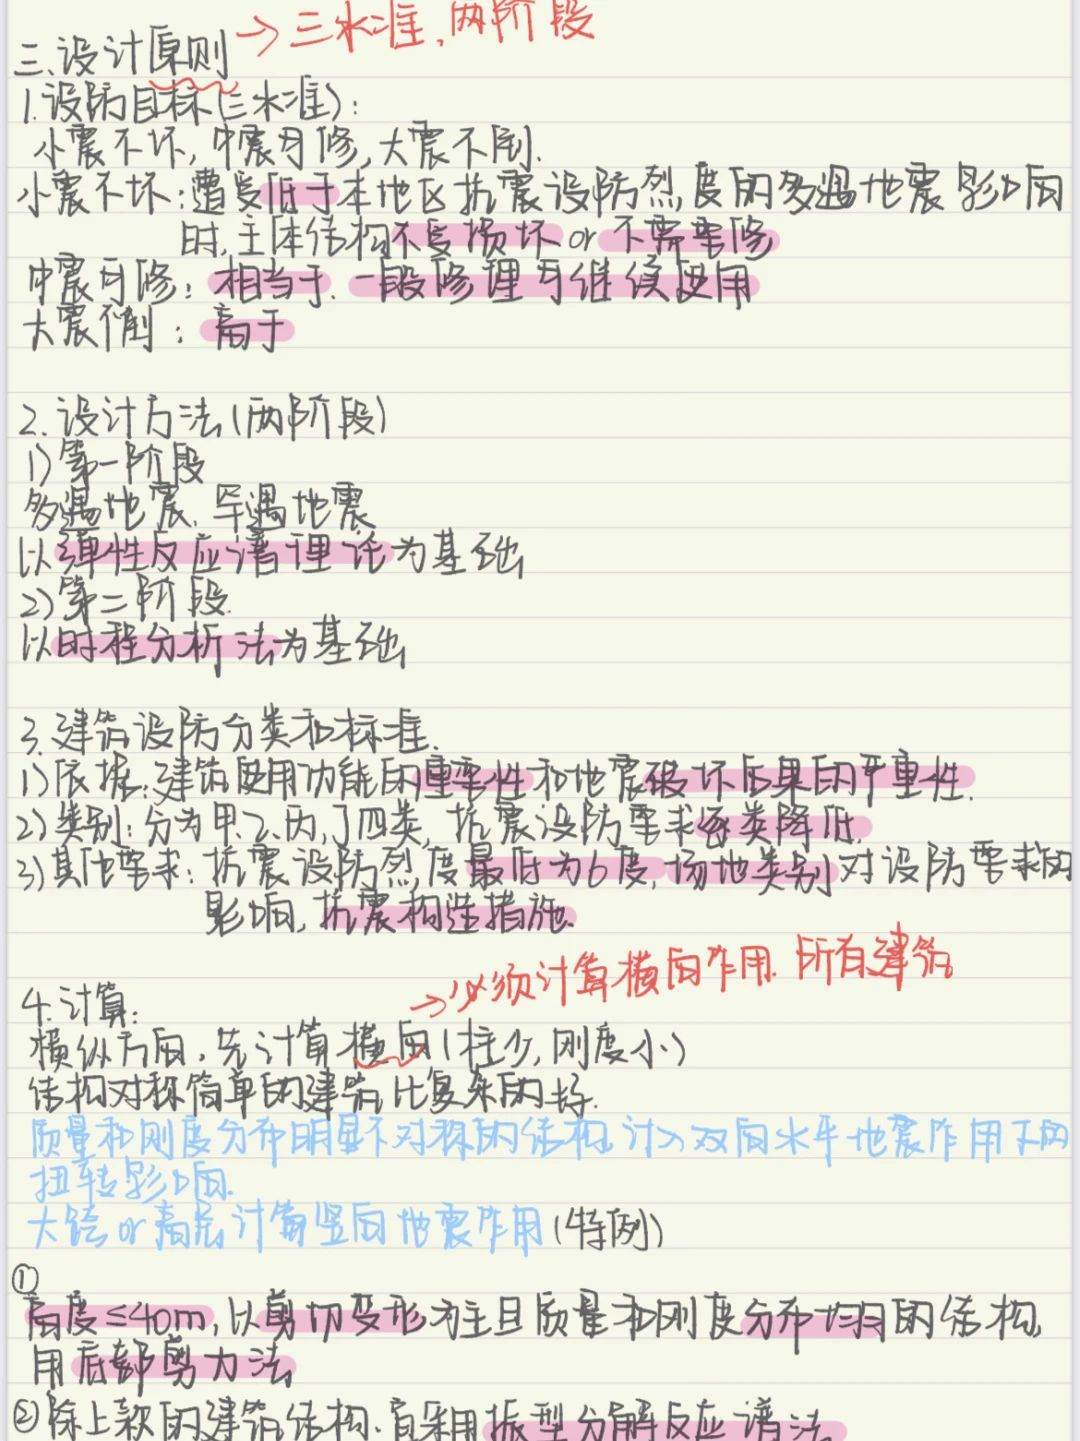 三.设计原则 → 三水准,两阶段
1.设防目标(三水准):
小震不坏,中震可修,大震不倒.
小震不坏:遭受低于本地区抗震设防烈度的多遇地震影响
时,主体结构不受损坏or不需要修
中震可修:相当于.一段修理可继续使用
大震不倒:高于
2.设计方法(两阶段)
1)第一阶段
多遇地震.罕遇地震
以弹性反应谱理论为基础
2)第二阶段.
以时程分析法为基础
3.建筑设防分类和标准.
1)依据:建筑使用功能的重要性和地震破坏后果的严重性.
2)类别:分为甲.乙.丙.丁四类,抗震设防要求逐类降低.
3)其他要求:抗震设防烈度最低为6度,场地类别对设防要求的
影响,抗震构造措施.
→必须计算横向作用.所有建筑
4.计算:
横纵方向,先计算横向(柱少,刚度小)
结构对称简单的建筑比复杂的好.
质量和刚度分布明显不对称的结构,计入双向水平地震作用下的
扭转影响.
大跨or高层计算竖向地震作用(特例)
①
高度≤40m,以剪切变形为主且质量和刚度分布均匀的结构,
用底部剪力法
②除上款的建筑结构.宜采用振型分解反应谱法